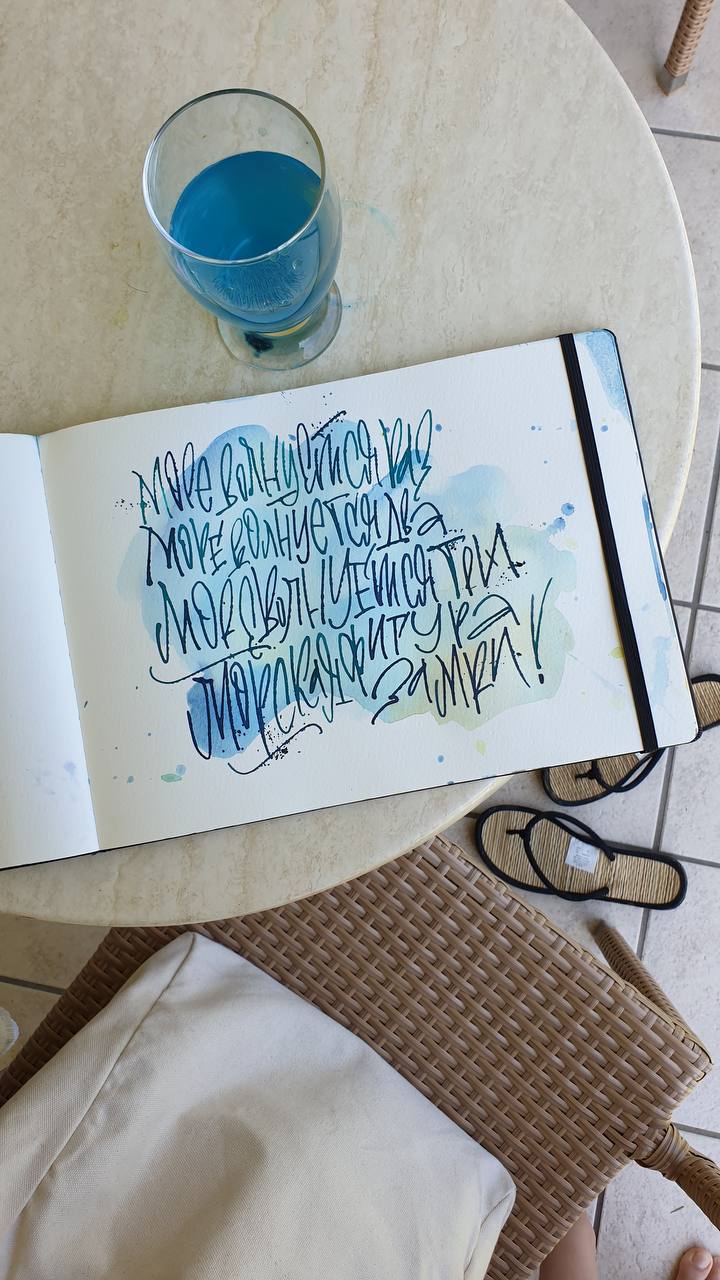 Море волнуется раз
Море волнуется два
Море волнуется три
Морская фигура
замри!